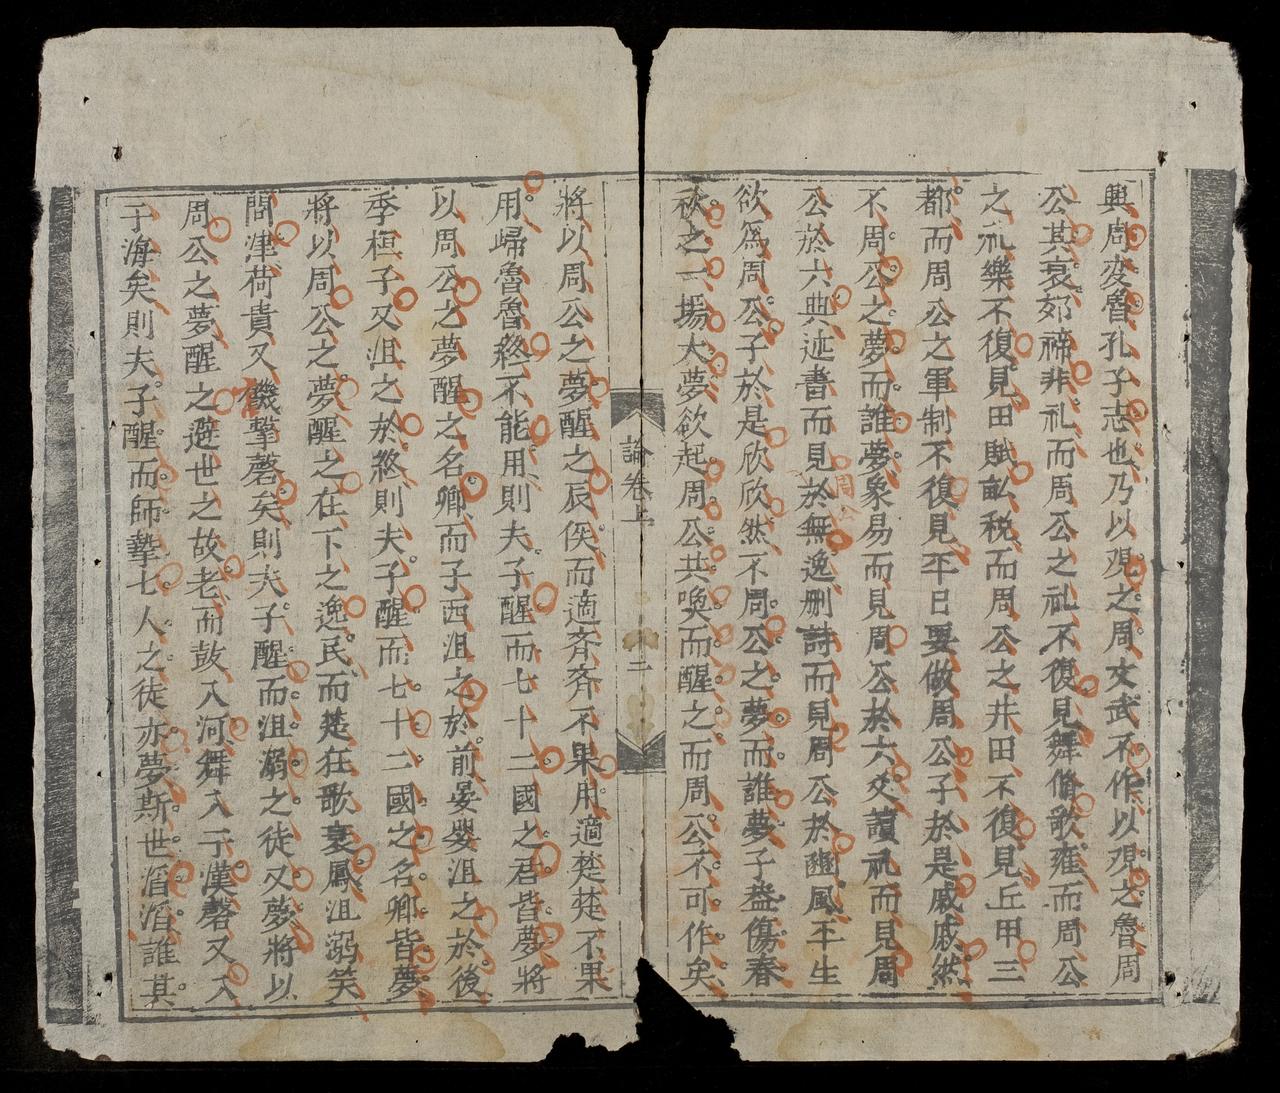 興周変魯孔子志也乃以覌之周文武不作以覌之魯周
公其衰郊禘非礼而周公之礼不復見舞脩歌雍而周公
之礼樂不復見田賦畝税而周公之井田不復見丘甲三
都而周公之軍制不復見平日要做周公子於是戚戚然
不周公之夢而誰夢象易而見周公於六爻讀礼而見周
公於六典述書而見於無逸删詩而見周公於豳風平生
周公
欲為周公子於是欣欣然不周公之夢而誰夢子盖傷春
秋之一場大夢欲起周公共喚而醒之而周公不可作矣
論卷上
二
將以周公之夢醒之辰侯而適齐齐不果用適楚楚不果
用歸魯魯終不能用則夫子醒而七十二國之君皆夢將
以周公之夢醒之名卿而子西沮之於前晏嬰沮之於後
季桓子又沮之於終則夫子醒而七十二國之名卿皆夢
將以周公之夢醒之在下之逸民而楚狂歌衰鳳沮溺笑
問津荷蕢又譏撃磬矣則夫子醒而沮溺之徒又夢將以
周公之夢醒之避世之故老而鼓入河舞入于漢磬又入
于海矣則夫子醒而師摯七人之徒亦夢斯世滔滔誰其